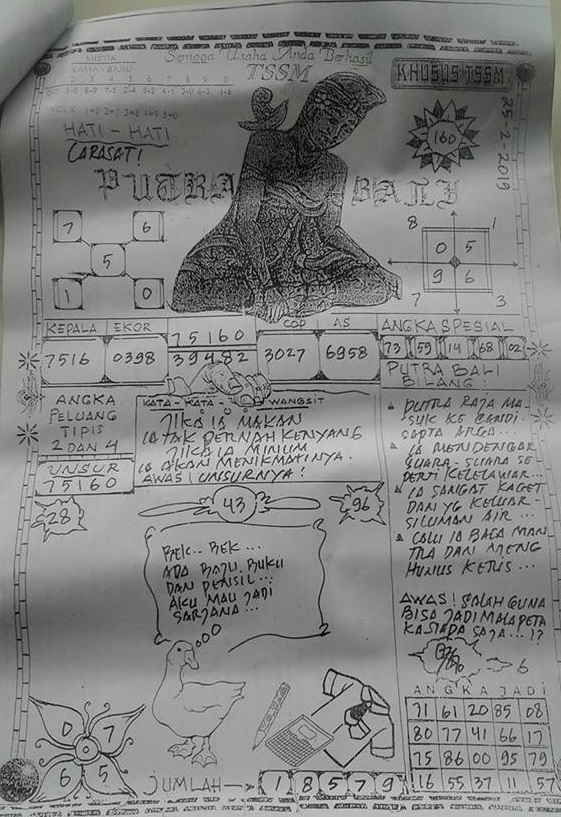 Semoga Usaha Anda Berhasil
TSSM
KHUSUS TSSM
MISTIK
LAMA - BARU
25-2-2019
160
HATI - HATI
CARASAT!
PUTRA BALI
7 6
5
1 0
8 1
0 5
9 6
7 3
KEPALA EKOR 75160 COP AS ANGKA SPESIAL
7516 0398 39482 3027 6958 73 59 14 68 02
ANGKA
PELUANG
TIPIS
2 DAN 4
UNSUR
75160
KATA - KATA WANGSIT
JIKA IA MAKAN
IA TAK PERNAH KENYANG
JIKA IA MINUM
IA AKAN MENIKMATINYA.
AWAS! UNSURNYA!
PUTRA BALI
BILANG:
PUTRA RAJA MA-
SUK KE CANDI-
SAPTA ARGA...
IA MENDENGAR
SUARA-SUARA SE
PERTI KELELAWAR...
IA SANGAT KAGET
DAN YG KELUAR-
SILUMAN AIR...
LALU IA BACA MAN
TRA DAN MENG
HUNUS KERIS...
AWAS! SALAH GUNA
BISA JADI MALAPETA
28
43
96
BEK.. BEK...
ADA BAJU. BUKU
DAN PENSIL...
AKU MAU JADI
SARJANA...
6
ANGKA JADI
71 61 20 85 08
80 77 41 66 17
75 86 00 95 79
16 55 37 11 57
0 7
6 5
JUMLAH 1 8 5 7 9